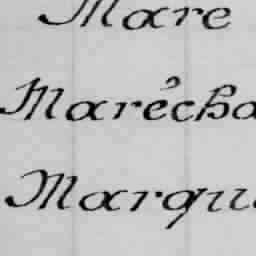 Mare
Marécha
Marqu